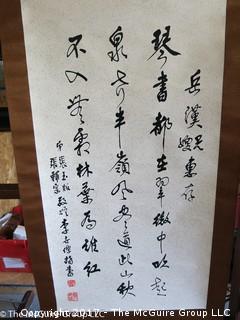 岳漢兄嫂惠存
琴書都在翠微中吹起
泉声半嶺風道此山秋
不入霜林葉為誰紅
張玉
張宗敬贈李書
Copyright 2017 - The McGuire Group LLC